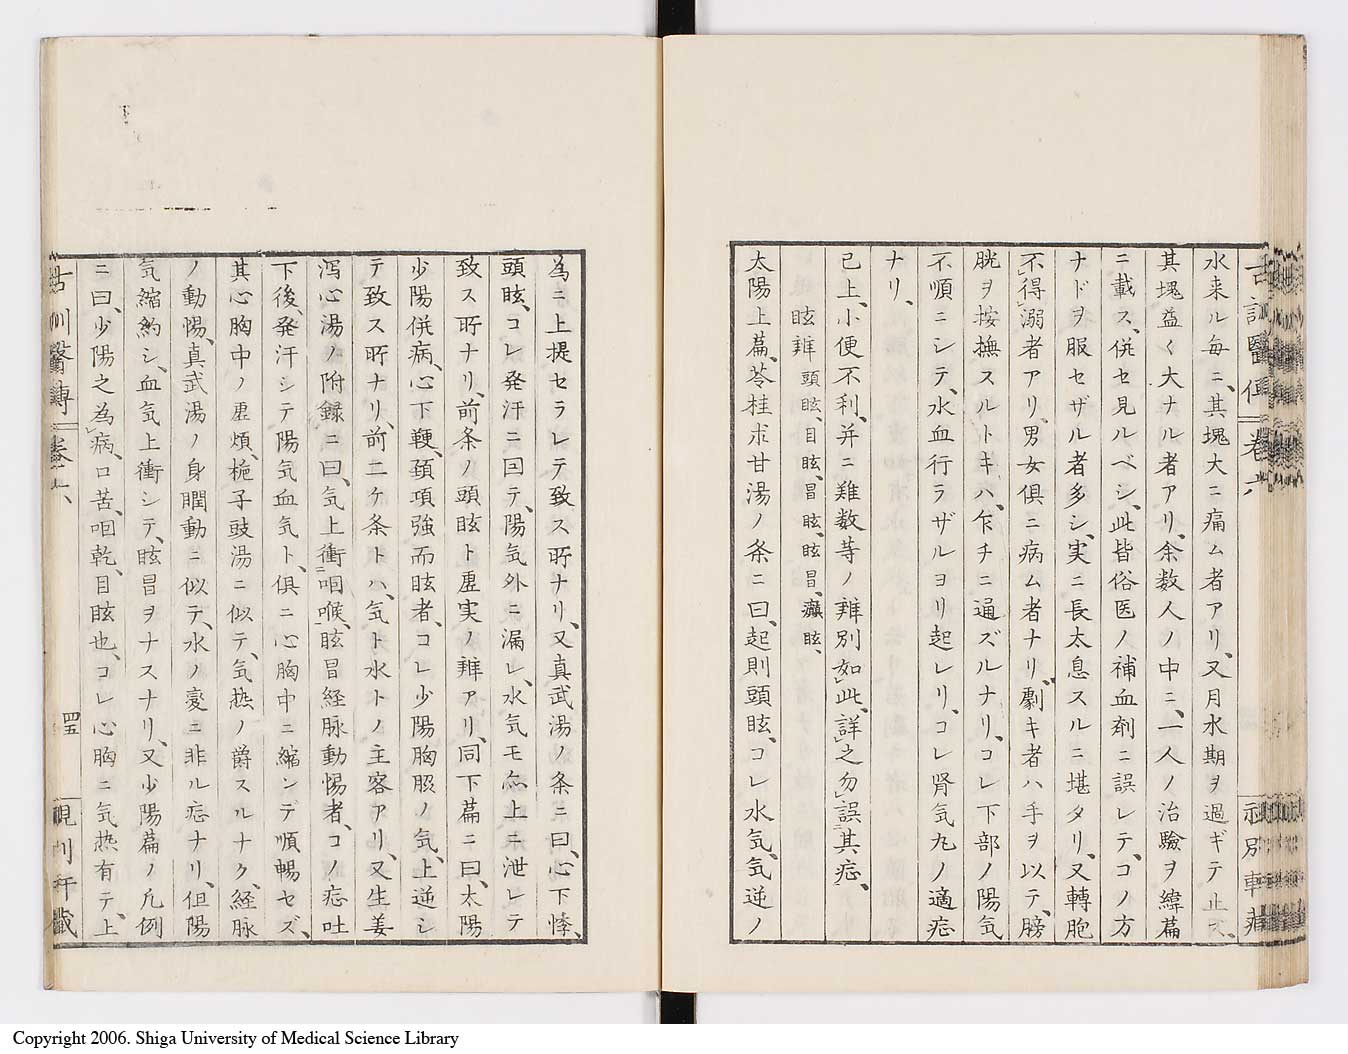 古訓醫傳 巻六
水来ル毎ニ、其塊大ニ痛ム者アリ、又月水期ヲ過ギテ止ズ、
其塊益々大ナル者アリ、余数人ノ中ニ、一人ノ治驗ヲ緯篇
ニ載ス、併セ見ルベシ、此皆俗医ノ補血剤ニ誤レテ、コノ方
ナドヲ服セザル者多シ、実ニ長太息スルニ堪タリ、又轉胞
不得溺者アリ、男女倶ニ病ム者ナリ、劇キ者ハ手ヲ以テ、膀
胱ヲ按撫スルトキハ、乍チニ通ズルナリ、コレ下部ノ陽気
不順ニシテ、水血行ラザルヨリ起レリ、コレ腎気丸ノ適症
ナリ、
已上、小便不利、并ニ難数等ノ辨別如此、詳之勿誤其症、
眩辨 頭眩、目眩、冒眩、眩冒、癲眩、
太陽上篇、苓桂朮甘湯ノ条ニ曰、起則頭眩、コレ水気、気逆ノ
為ニ上提セラレテ致ス所ナリ、又真武湯ノ条ニ曰、心下悸、
頭眩、コレ発汗ニ因テ、陽気外ニ漏レ、水気モ亦上ニ泄レテ
致ス所ナリ、前条ノ頭眩ト虚実ノ辨アリ、同下篇ニ曰、太陽
少陽併病、心下鞕、頸項強而眩者、コレ少陽胸脇ノ気、上逆シ
テ致ス所ナリ、前二ケ条トハ、気ト水トノ主客アリ、又生姜
瀉心湯ノ附録ニ曰、気上衝咽喉、眩冒経脉動惕者、コノ症吐
下後、発汗シテ陽気血気ト、倶ニ心胸中ニ縮ンデ順暢セズ、
其心胸中ノ虚煩、梔子豉湯ニ似テ、気熱ノ爵スルナク、経脉
ノ動惕、真武湯ノ身瞤動ニ似テ、水ノ変ニ非ル症ナリ、但陽
気縮約シ、血気上衝シテ、眩冒ヲナスナリ、又少陽篇ノ凡例
ニ曰、少陽之為病、口苦、咽乾、目眩也、コレ心胸ニ気熱有テ、上
四五
Copyright 2006. Shiga University of Medical Science Library